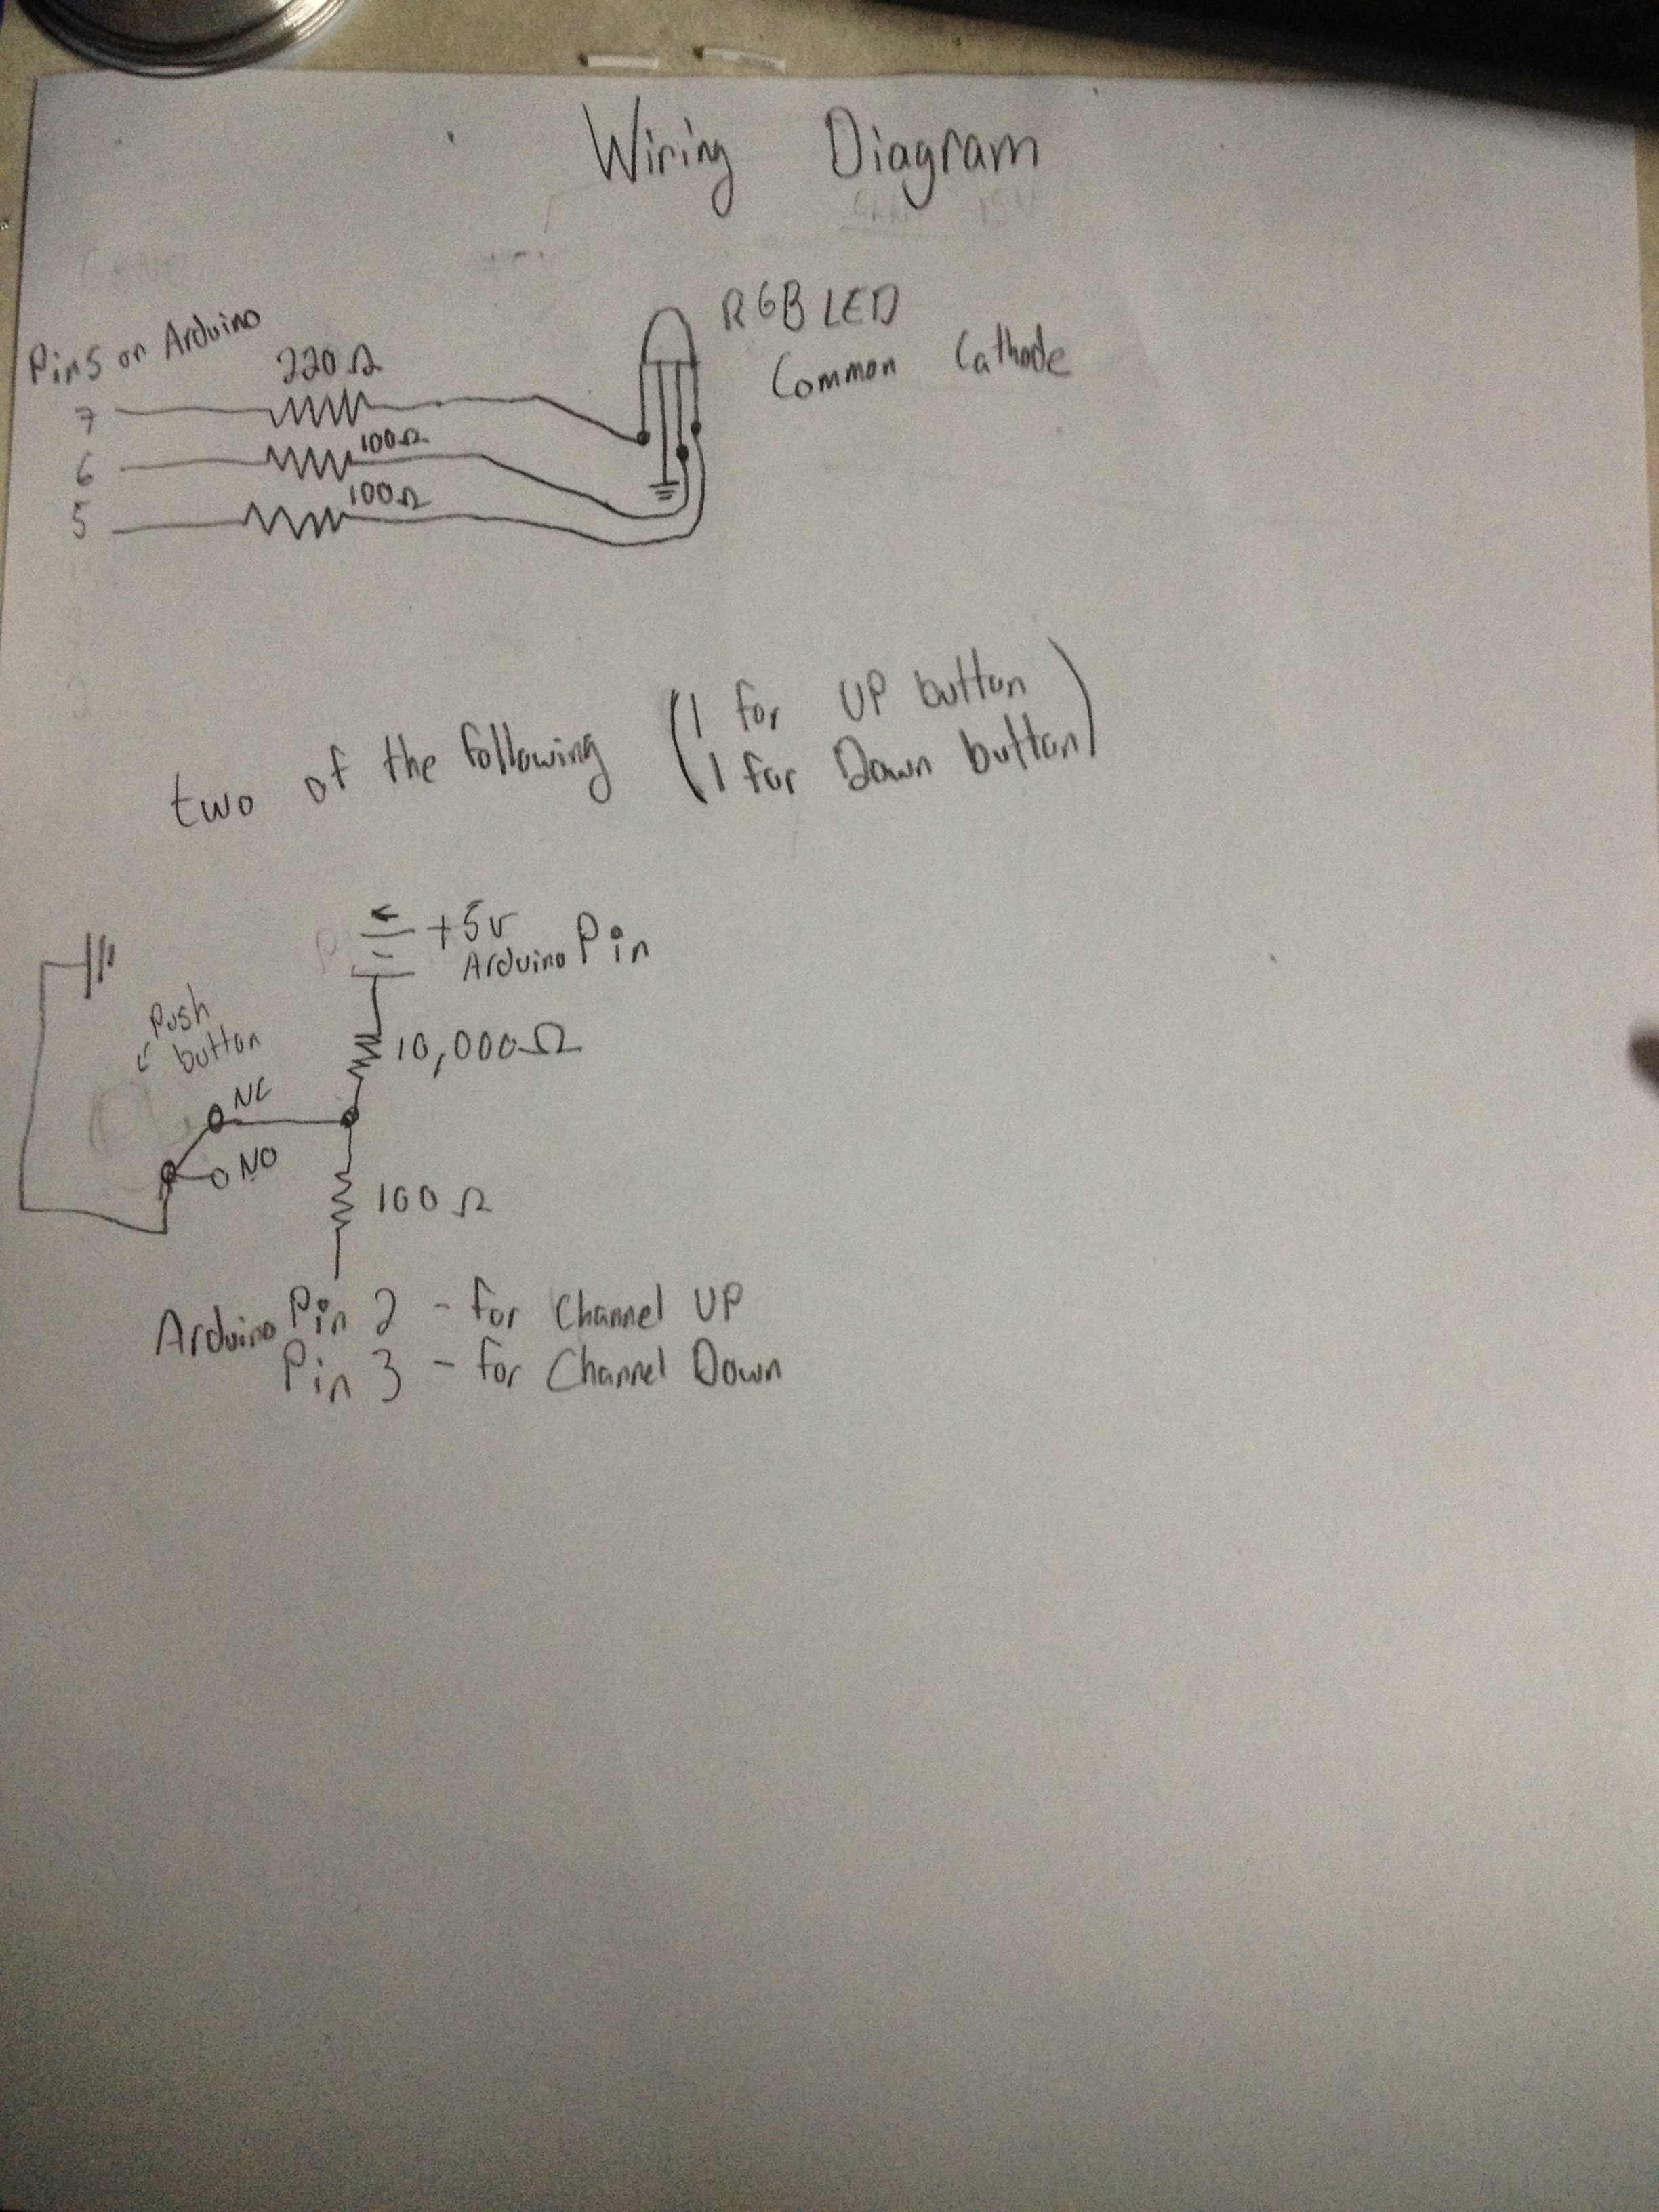 Wiring Diagram
RGB LED
Common Cathode
Pins on Arduino
7
220Ω
6
100Ω
5
100Ω
two of the following (1 for UP button
1 for Down button)
+5v
Arduino Pin
Push
button
10,000Ω
NC
NO
100Ω
Arduino Pin 2 - for Channel UP
Pin 3 - for Channel Down